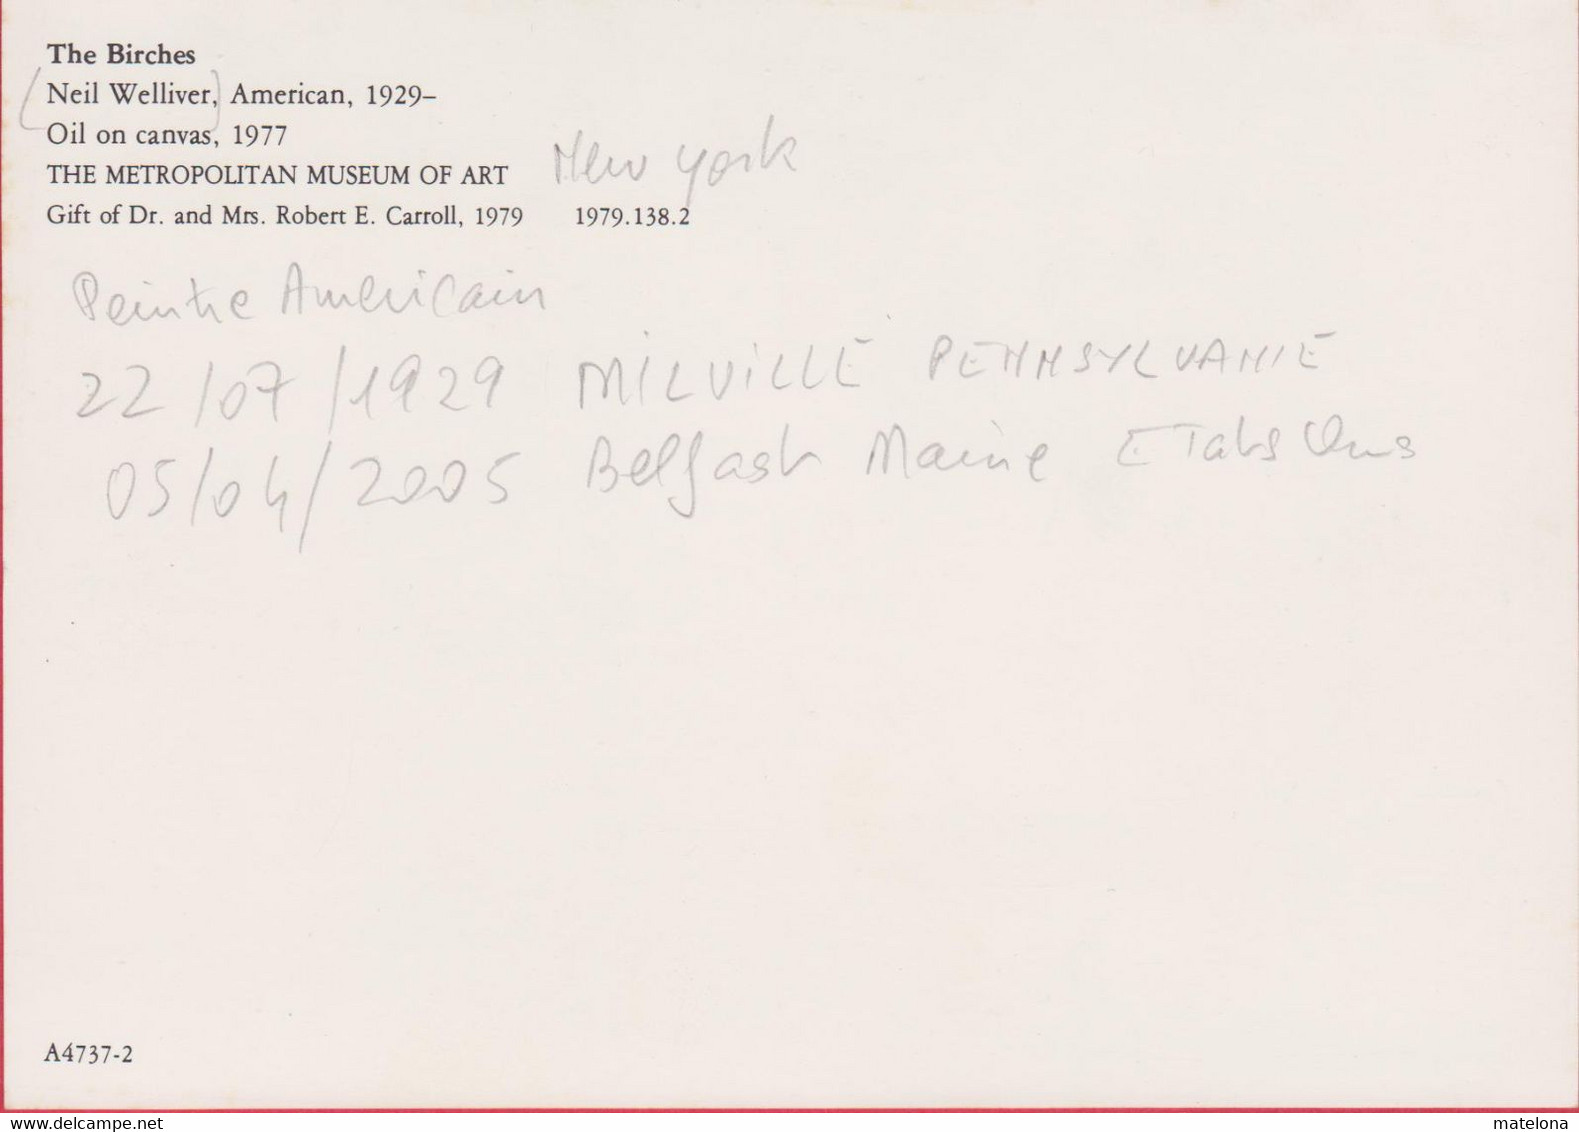 The Birches
(Neil Welliver,) American, 1929–
Oil on canvas, 1977
THE METROPOLITAN MUSEUM OF ART New York
Gift of Dr. and Mrs. Robert E. Carroll, 1979 1979.138.2
Peintre Americain
22/07/1929 MILVILLE PENNSYLVANIE
05/04/2005 Belfast Maine Etats Unis
A4737-2
www.delcampe.net
matelona